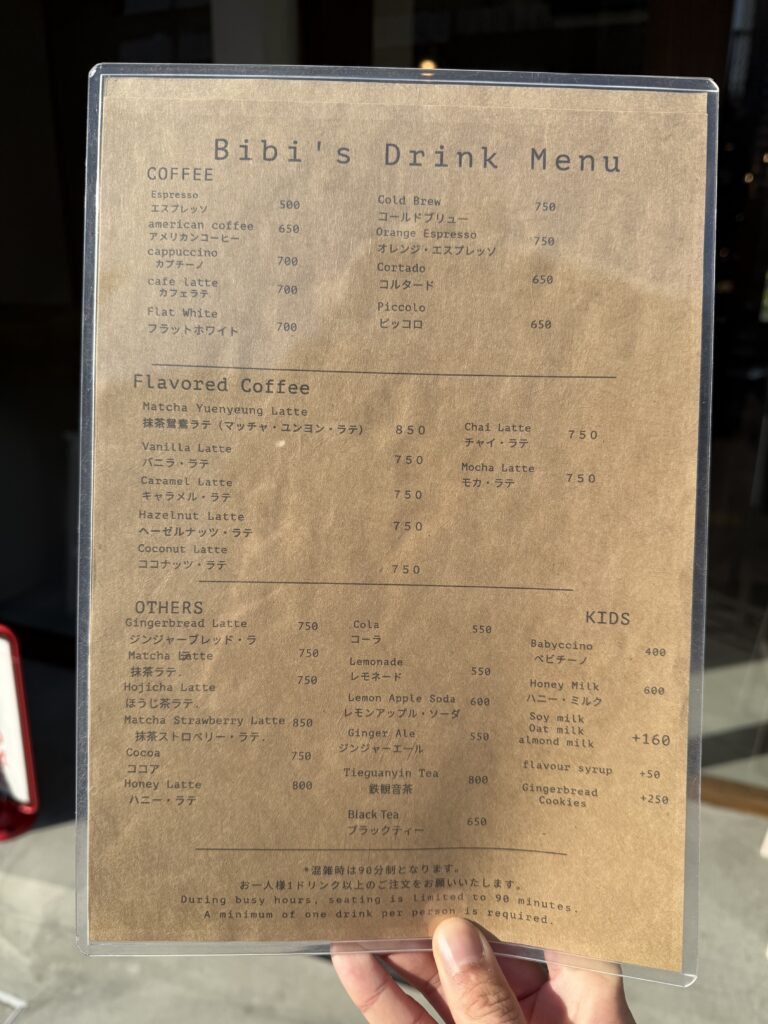 Bibi's Drink Menu
COFFEE
Espresso
エスプレッソ 500
american coffee
アメリカンコーヒー 650
cappuccino
カプチーノ 700
cafe latte
カフェラテ 700
Flat White
フラットホワイト 700
Cold Brew
コールドブリュー 750
Orange Espresso
オレンジ・エスプレッソ 750
Cortado
コルタード 650
Piccolo
ピッコロ 650
Flavored Coffee
Matcha Yuenyeung Latte
抹茶鴛鴦ラテ（マッチャ・ユンヨン・ラテ） 850
Vanilla Latte
バニラ・ラテ 750
Caramel Latte
キャラメル・ラテ 750
Hazelnut Latte
ヘーゼルナッツ・ラテ 750
Coconut Latte
ココナッツ・ラテ 750
Chai Latte
チャイ・ラテ 750
Mocha Latte
モカ・ラテ 750
OTHERS
Gingerbread Latte 750
ジンジャーブレッド・ラ
テ
Matcha Latte 750
抹茶ラテ.
Hojicha Latte 750
ほうじ茶ラテ.
Matcha Strawberry Latte 850
抹茶ストロベリー・ラテ.
Cocoa 750
ココア
Honey Latte 800
ハニー・ラテ
Cola 550
コーラ
Lemonade 550
レモネード
Lemon Apple Soda 600
レモンアップル・ソーダ
Ginger Ale 550
ジンジャーエール
Tieguanyin Tea 800
鉄観音茶
Black Tea 650
ブラックティー
KIDS
Babyccino 400
ベビチーノ
Honey Milk 600
ハニー・ミルク
Soy milk
Oat milk
almond milk +160
flavour syrup +50
Gingerbread
Cookies +250
*混雑時は90分制となります。
お一人様1ドリンク以上のご注文をお願いいたします。
During busy hours, seating is limited to 90 minutes.
A minimum of one drink per person is required.